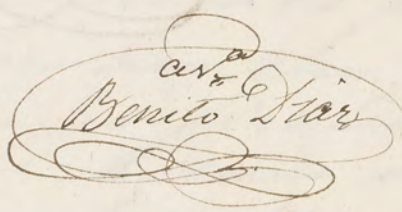 Benito Diaz